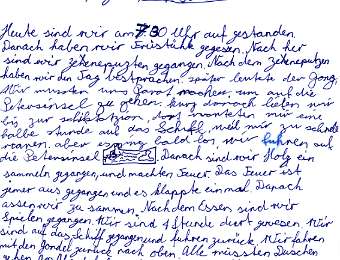 Heute sind wir am 7:30 Uhr auf gestanden.
Danach haben wir Früstück gegesen. Nach her
sind wir zeheneputzen gegangen. Nach dem zeheneputzen
haben wir den Tag besprochen. später leutete der Gong.
Wir mussten uns Parat machen, um auf die
Petersinsel zu gehen. kurz darach liefen wir
bis zur schifstation, dort warteten wir eine
halbe stunde auf das Schiff, weil wir zu schnell
waren. aber es ging bald los, wir fuhren auf
die Petersinsel. Danach sind wir Holz ein
sammeln gegangen, und machten Feuer. Das Feuer ist
jemer aus gegangen und es klappte einmal. Danach
assen wir zu sammen. Nach dem Essen sind wir
Spielen gegangen. Wir sind 4 Stunde dort gewesen. Wir
sind auf das schiff gegangen und fuhren zurück. Wir fahren
mit den Gondel zurück nach oben. Alle müssten Duschen